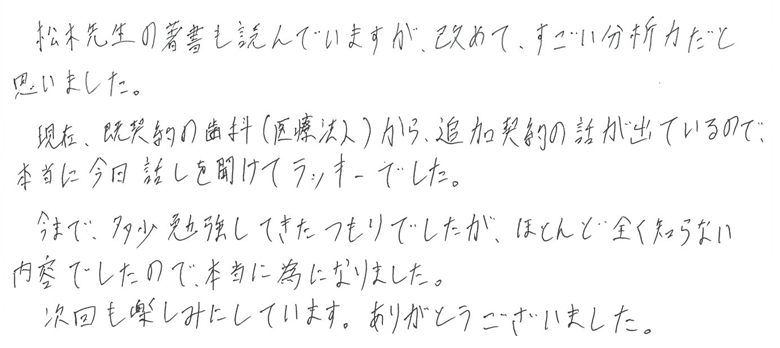 松木先生の著書も読んでいますが、改めて、すごい分析力だと
思いました。
現在、既契約の歯科(医療法人)から、追加契約の話が出ているので、
本当に今日話しを聞けてラッキーでした。
今まで、多少勉強してきたつもりでしたが、ほとんど全く知らない
内容でしたので、本当に為になりました。
次回も楽しみにしています。ありがとうございました。